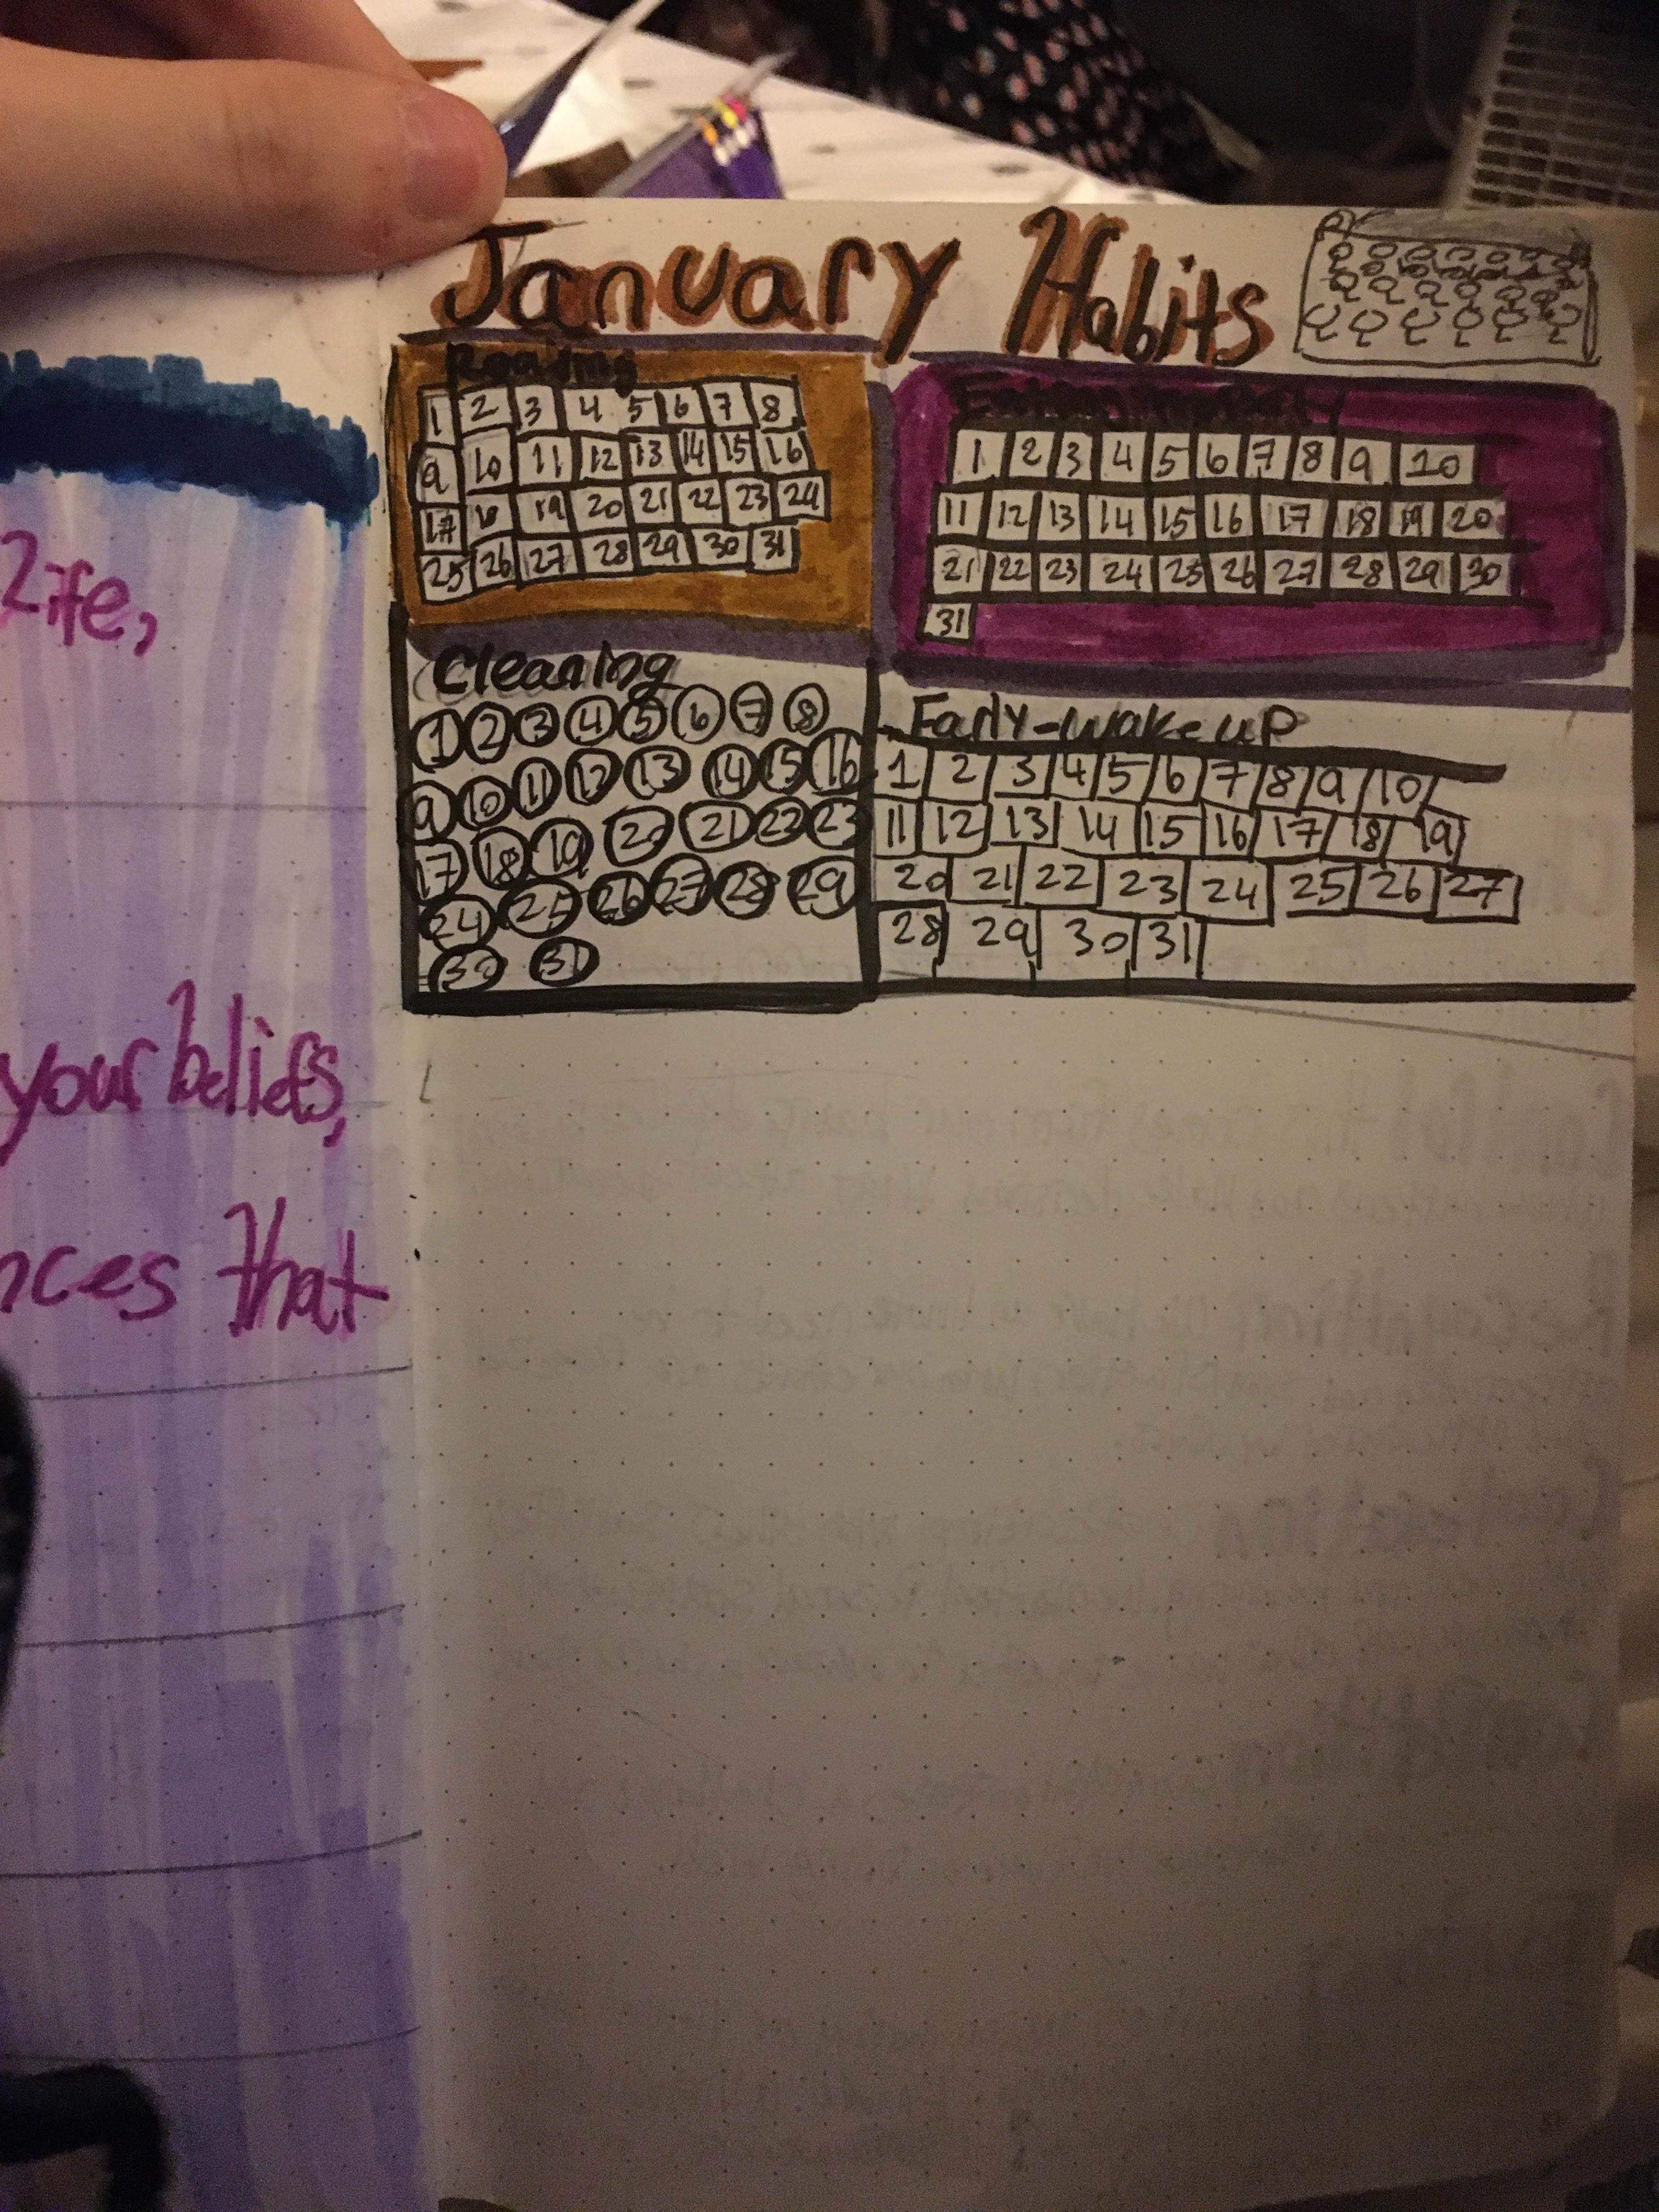 January Habits
Reading
1 2 3 4 5 6 7 8
9 10 11 12 13 14 15 16
17 18 19 20 21 22 23 24
25 26 27 28 29 30 31
1 2 3 4 5 6 7 8 9 10
11 12 13 14 15 16 17 18 19 20
21 22 23 24 25 26 27 28 29 30
31
Cleaning
1 2 3 4 5 6 7 8
9 10 11 12 13 14 15 16
17 18 19 20 21 22 23
24 25 26 27 28 29
30 31
Early-wake up
1 2 3 4 5 6 7 8 9 10
11 12 13 14 15 16 17 18 19
20 21 22 23 24 25 26 27
28 29 30 31
Life,
your beliefs,
nces that